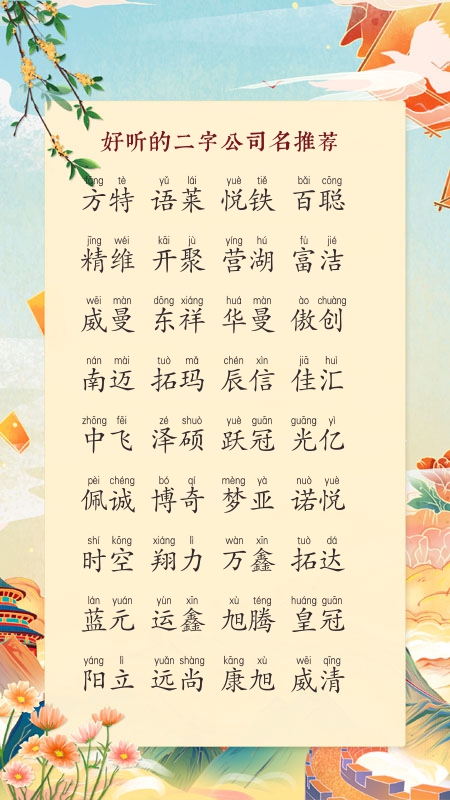 好听的二字公司名推荐
fāng tè yǔ lái yuè tiě bǎi cōng
方特 语莱 悦铁 百聪
jīng wéi kāi jù yíng hú fù jié
精维 开聚 营湖 富洁
wēi màn dōng xiáng huá màn ào chuàng
威曼 东祥 华曼 傲创
nán mài tuò mǎ chén xìn jiā huì
南迈 拓玛 辰信 佳汇
zhōng fēi zé shuò yuè guān guāng yì
中飞 泽硕 跃冠 光亿
pèi chéng bó qí mèng yà nuò yuè
佩诚 博奇 梦亚 诺悦
shí kōng xiáng lì wàn xīn tuò dá
时空 翔力 万鑫 拓达
lán yuán yùn xīn xù téng huáng guān
蓝元 运鑫 旭腾 皇冠
yáng lì yuǎn shàng kāng xù wēi qīng
阳立 远尚 康旭 威清